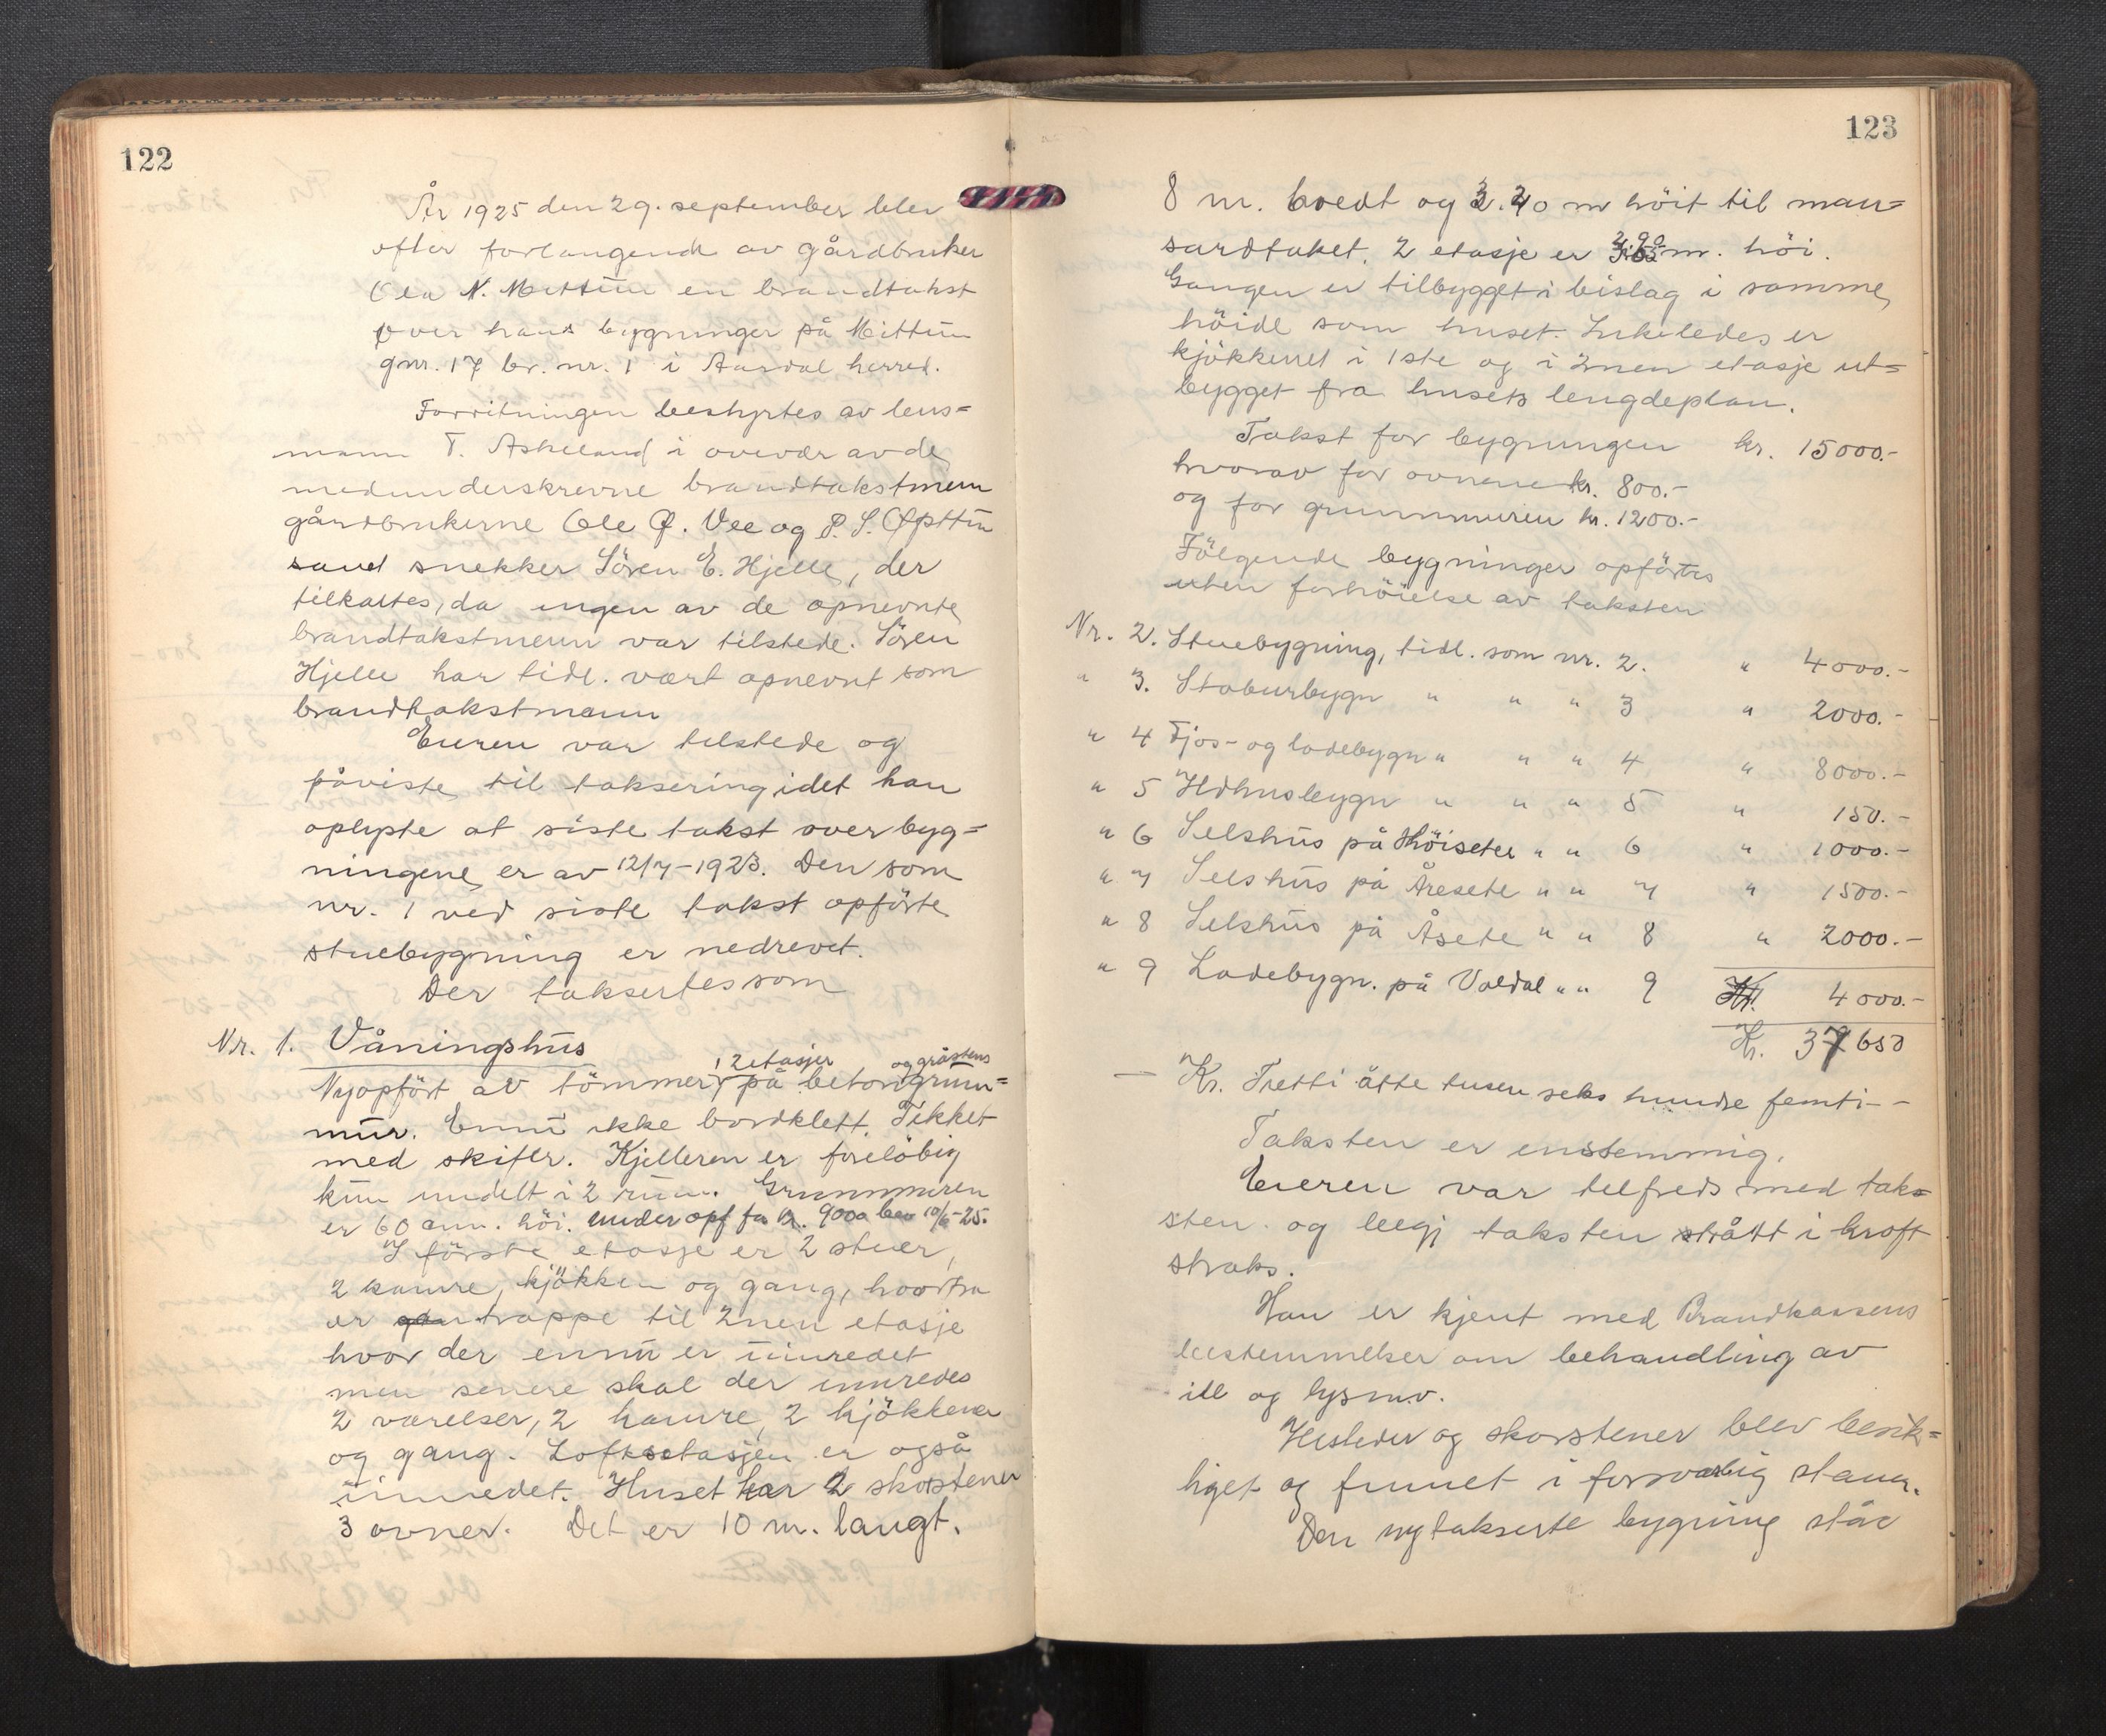 122
År 1925 den 29. september blev
efter forlangende av gårdbruker
Ola N. Mittün en brandtakst
over hans bygninger på Mittün
gnr. 17 br. nr. 1 i Aardal herred.
Forritningen bestyrtes av lens=
mann T. Askeland i overvær av de
medunderskrevne brandtakstmenn
gårdbrukerne Ole O. Vee og P. S. Øpttün
samt snekker Sören E. Hjelle, der
tilkaltes, da ingen av de opnevnte
brandtakstmenn var tilstede. Sören
Hjelle har tidl. vært opnevnt som
brandtakstmann
Eieren var tilstede og
påviste til taksering idet han
oplyste at siste takst over byg=
ningene er av 12/7-1923. Den som
nr. 1 ved siste takst opförte
stuebygning er nedrevet.
Der taksertes som
Nr. 1. Våningshüs
Nyopfört av tömmer i 2 etasjer på betong og gråstens grün=
mür. Ennü ikke bordklett. Tekket
med skifer. Kjelleren er foreløbig
kün inndelt i 2 rüm. Grunnmuren
er 60 cm. höi. under opf for kr. 9000 bev 10/6-25.
I förste etasje er 2 stuer,
2 kamre, kjökken og gang, hvorfra
er trappe til 2nen etasje
hvor der ennü er üinredet
men senere skal der innredes
2 værelser, 2 kamre, 2 kjökkener
og gang. Loftsetasjen er også
üinnredet. Huset har 2 skorstener
3 ovner. Det er 10 m. langt,
123
8 m. bredt og 3.20 m höit til man=
sardtaket. 2 etasje er 2.90 m. höi.
Gangen er tilbygget i bislag i samme
höide som huset. Likeledes er
kjökkenet i 1ste og i 2nen etasje ut=
bygget fra husets lengdeplan.
Takst for bygningen kr. 15000.-
hvorav for ovnene kr. 800.-
og for grunnmuren kr. 1200.-
Fölgende bygninger opförtes
uten forhöielse av taksten
Nr. 2. Stuebygning, tidl. som nr. 2. " 4000.-
" 3. Stabursbygn " " " 3 " 2000.-
" 4 Fjos- og ladebygn " " " 4 " 8000.-
" 5 Ildhusbygn " " " 5 " 150.-
" 6 Selshüs på Höisete " " 6 " 1000.-
" 7 Selshüs på Åresete " " 7 " 1500.-
" 8 Selshüs på Åsete " " 8 " 2000.-
" 9 Ladebygn. på Valdal " " 9 4000.-
Kr. 37650
— Kr. Tretti åtte tusen seks hundre femti —
Taksten er enstemmig.
Eieren var tilfreds med tak=
sten og lar taksten trått i kraft
straks.
Han er kjent med Brandkassens
bestemmelser om behandling av
ild og lys m.v.
Ildsteder og skorstener blev besik=
tiget og funnet i forsvarlig stand.
Den nytakserte bygning står